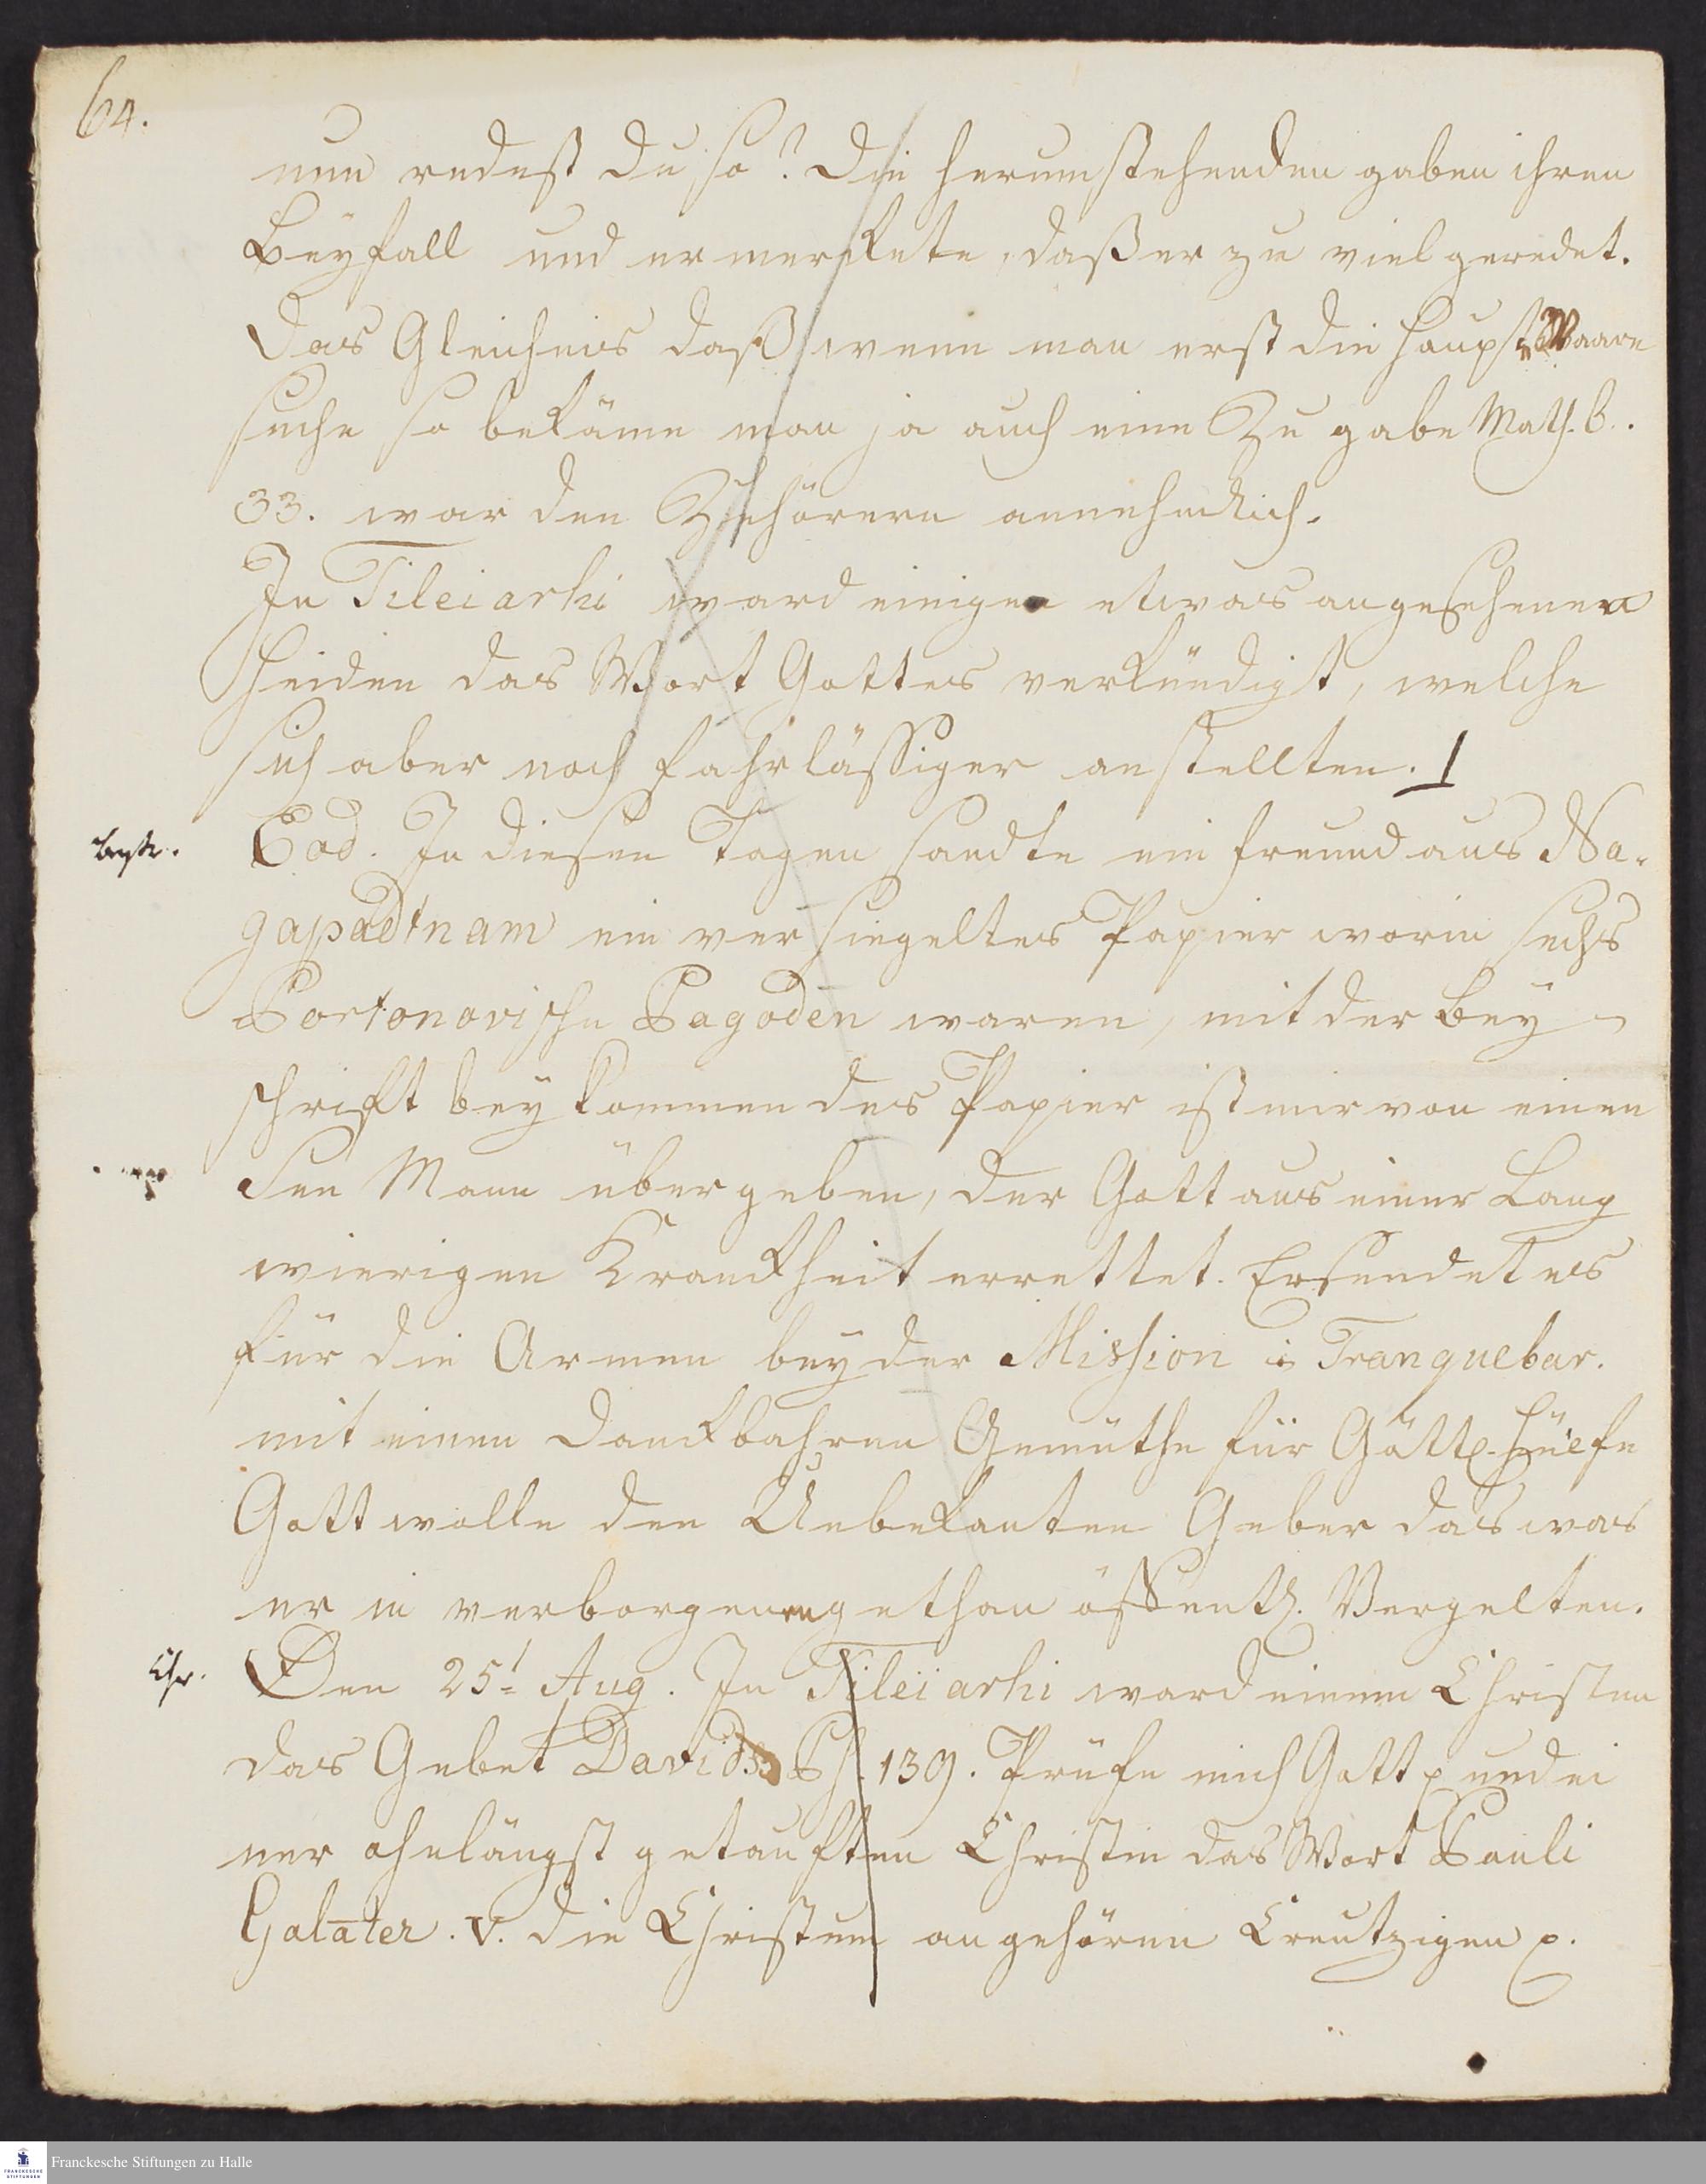 64.
nun redest du so? Die herumstehenden gaben ihren
Beyfall und er merckete, daß er zu viel geredet.
Das Gleichnis daß wenn man erst die Haupt Waare
suche so bekäme man ja auch eine Zu gabe Math. 6.
33. war den Zuhörern annehmlich.
In Tileiarhi ward einigen etwas angesehenen
Heiden das Wort Gottes verkündigt, welche
sich aber noch fahrlässiger anstellten.
Eod. In diesen Tagen sandte ein freund aus Na-
gapadtnam ein versiegeltes Papier worin sechs
Portonovische Pagoden waren, mit der Bey-
schrift beykommendes Papier ist mir von einen
den Mann übergeben, der Gott aus einer Lang
wierigen Kranckheit errettet. Er sendet es
für die Armen bey der Mission in Tranquebar.
mit einen danckbahren Gemüthe für Göttl. Hülfe
Gott wolle den Unbekanten Geber das was
er in verborgenen gethan öffentl. Vergelten.
Chr.
Den 25t Aug. In Tileiarhi ward einem Christen
das Gebet Davids Ps. 139. Prüfe mich Gott p und ei
ner ohnlängst getauften Christin das Wort Pauli
Galater. V. die Christum angehören Creutzigen p.
Franckesche Stiftungen zu Halle
FRANCKESCHE
STIFTUNGEN